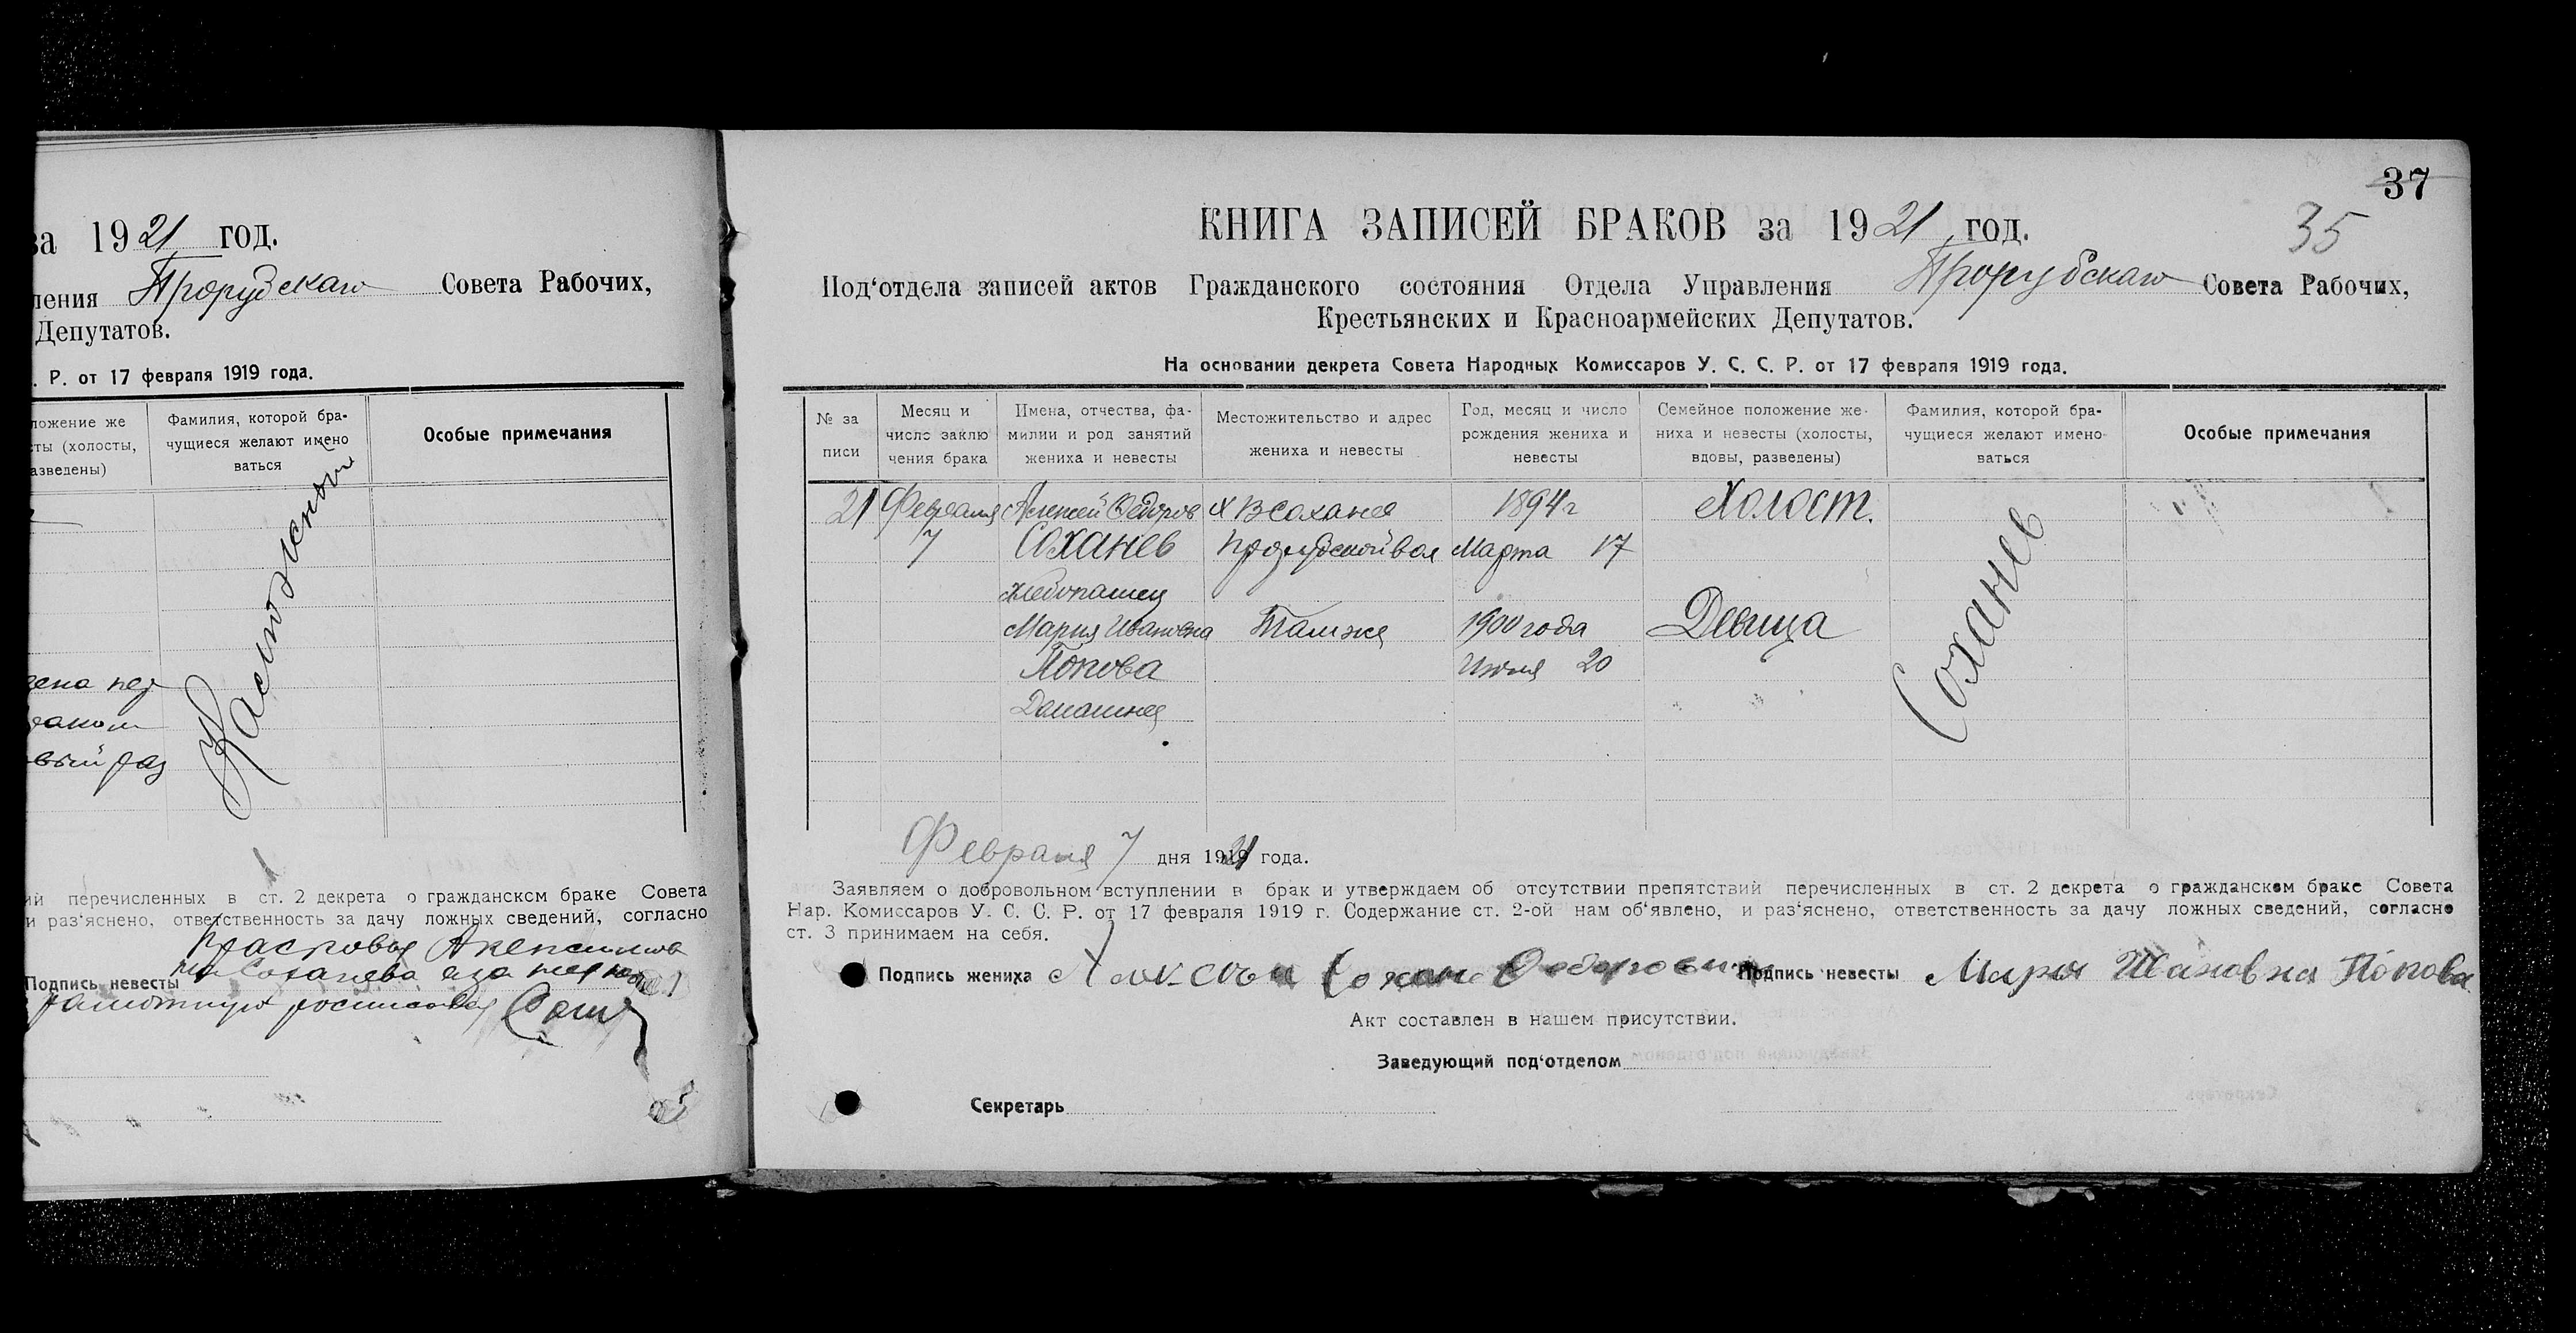 за 1921 год.
ления Прорубскаго Совета Рабочих,
Депутатов.
. Р. от 17 февраля 1919 года.
ложение же
сты (холосты,
азведены)
Фамилия, которой бра-
чущиеся желают имено
ваться
Особые примечания
вый раз
ий перечисленных в ст. 2 декрета о гражданском браке Совета
и раз'яснено, ответственность за дачу ложных сведений, согласно
Подпись невесты
37
35
КНИГА ЗАПИСЕЙ БРАКОВ за 1921 год.
Под'отдела записей актов Гражданского состояния Отдела Управления Прорубскаго Совета Рабочих,
Крестьянских и Красноармейских Депутатов.
На основании декрета Совета Народных Комиссаров У. С. С. Р. от 17 февраля 1919 года.
№ за
писи
Месяц и
число заклю
чения брака
Имена, отчества, фа-
милии и род занятий
жениха и невесты
Местожительство и адрес
жениха и невесты
Год, месяц и число
рождения жениха и
невесты
Семейное положение же-
ниха и невесты (холосты,
вдовы, разведены)
Фамилия, которой бра-
чущиеся желают имено-
ваться
Особые примечания
21 Февраля Алексей Федоров х В Соханев 1894 г Холост.
7 Соханев Прорубской вол Марта 17
хлебопашец
Мария Ивановна Там же 1900 года Девица
Попова Июня 20
Домашнея
Соханев
Февраля 7 дня 1921 года.
Заявляем о добровольном вступлении в брак и утверждаем об отсутствии препятствий перечисленных в ст. 2 декрета о гражданском браке Совета
Нар. Комиссаров У. С. С. Р. от 17 февраля 1919 г. Содержание ст. 2-ой нам об'явлено, и раз'яснено, ответственность за дачу ложных сведений, согласно
ст. 3 принимаем на себя.
Подпись жениха Подпись невесты Мария Ивановна Попова
Акт составлен в нашем присутствии.
Заведующий под'отделом
Секретарь